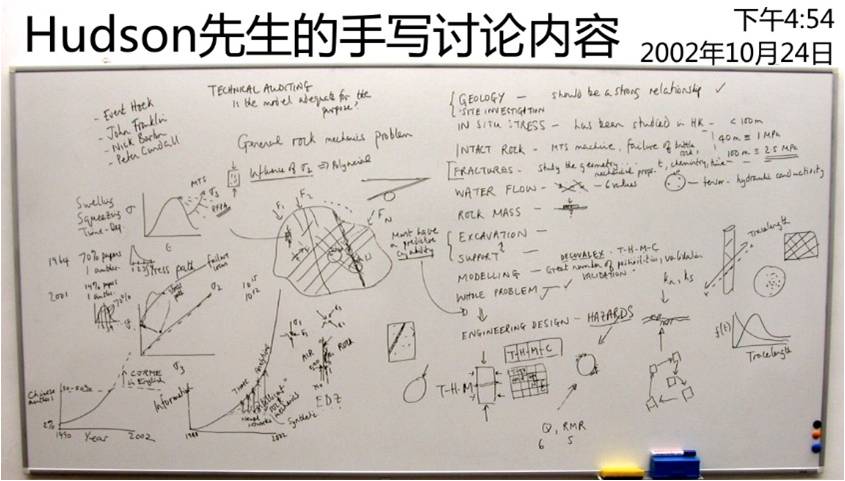 Hudson先生的手写讨论内容
下午4:54
2002年10月24日
- Evert Hoek
- John Franklin
- Nick Barton
- Peter Cundall
TECHNICAL AUDITING
Is the model adequate for the
purpose?
General rock mechanics problem
Influence of σ2 ⇒ Polynomial
Swelling
Squeezing
Time-Dep
σ
MTS
σ3
ε
F1
F2
FN
Must have
a predictive
capability
1964 70% papers
1 author
2001 14% papers
1 author
70%
stress path
failure
locus
σ2
σ3
10^15
10^12
σ1
AIR
ROCK
EDZ
Chinese
authors
80-90%
2%
1990 Year 2002
↑ IJRMMS
in English
Information
Time
Synthetic
1988
2002
{ GEOLOGY - should be a strong relationship ✓
SITE INVESTIGATION
IN SITU STRESS - has been studied in HK - <100m
40m ≡ 1 MPa
100m ≡ 2.5 MPa
INTACT ROCK - MTS machine, failure of brittle rock,
FRACTURES - study the geometry... mechanical props. t, chemistry, time -
WATER FLOW - 6 values
tensor - hydraulic conductivity
ROCK MASS -
{ EXCAVATION -
SUPPORT? -
MODELLING - DECOVALEX - T-H-M-C
Great number of possibilities, validation
VALIDATION
WHOLE PROBLEM ✓
ENGINEERING DESIGN - HAZARDS
kn, ks
T-H-M-C
T-H-M
Q, RMR
6 5
Tracelength
f(t)
Tracelength